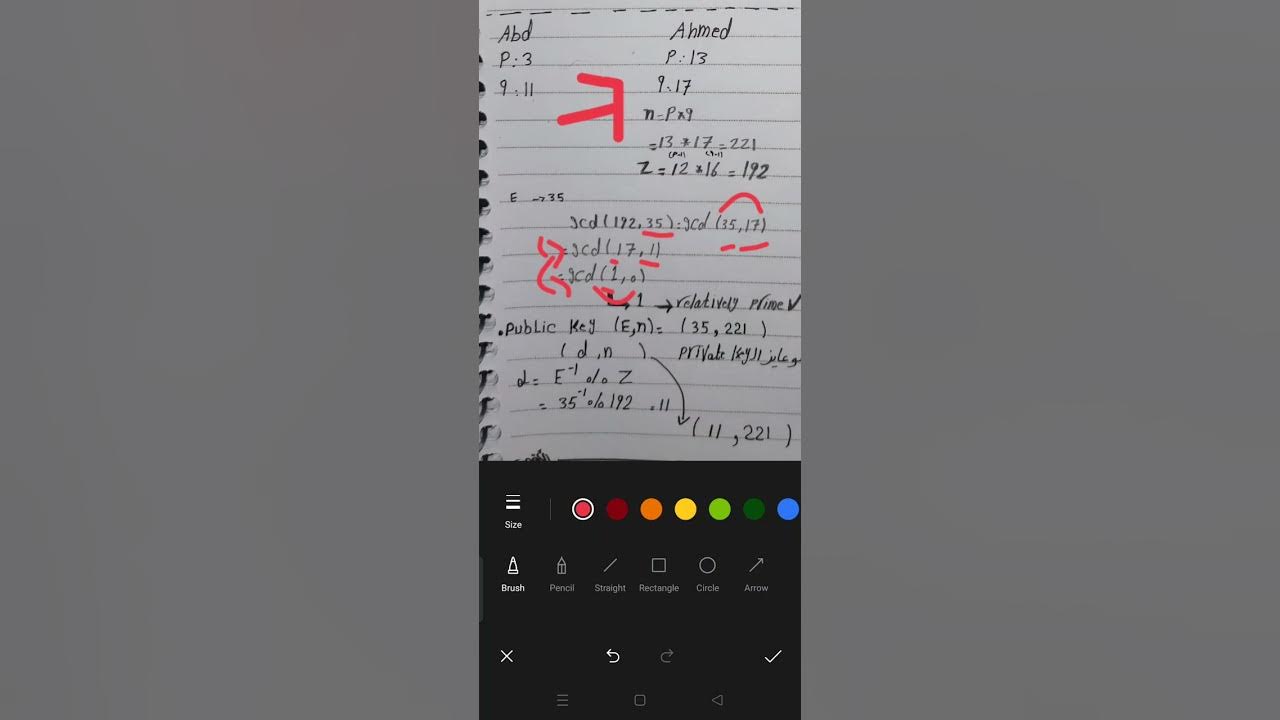 Abd
P:3
q:11
Ahmed
P:13
q:17
n=P*q
=13*17=221
(P-1) (q-1)
Z=12*16=192
E →35
gcd(192,35)=gcd(35,17)
=gcd(17,1)
=gcd(1,0)
1 → relatively prime ✓
.public key (E,n)= (35,221)
(d,n) private key وعايز ال
d= E⁻¹ % Z
= 35⁻¹%192 =11
(11,221)
Size
Brush Pencil Straight Rectangle Circle Arrow